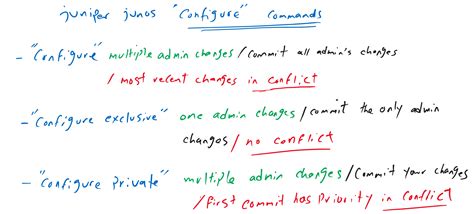 juniper junos "Configure" Commands
- "Configure" multiple admin changes / Commit all admin's changes
/ most recent changes in conflict
- "Configure exclusive" one admin changes / commit the only admin
changes / no conflict
- "Configure Private" multiple admin changes / Commit your changes
/ first commit has Priority in conflict